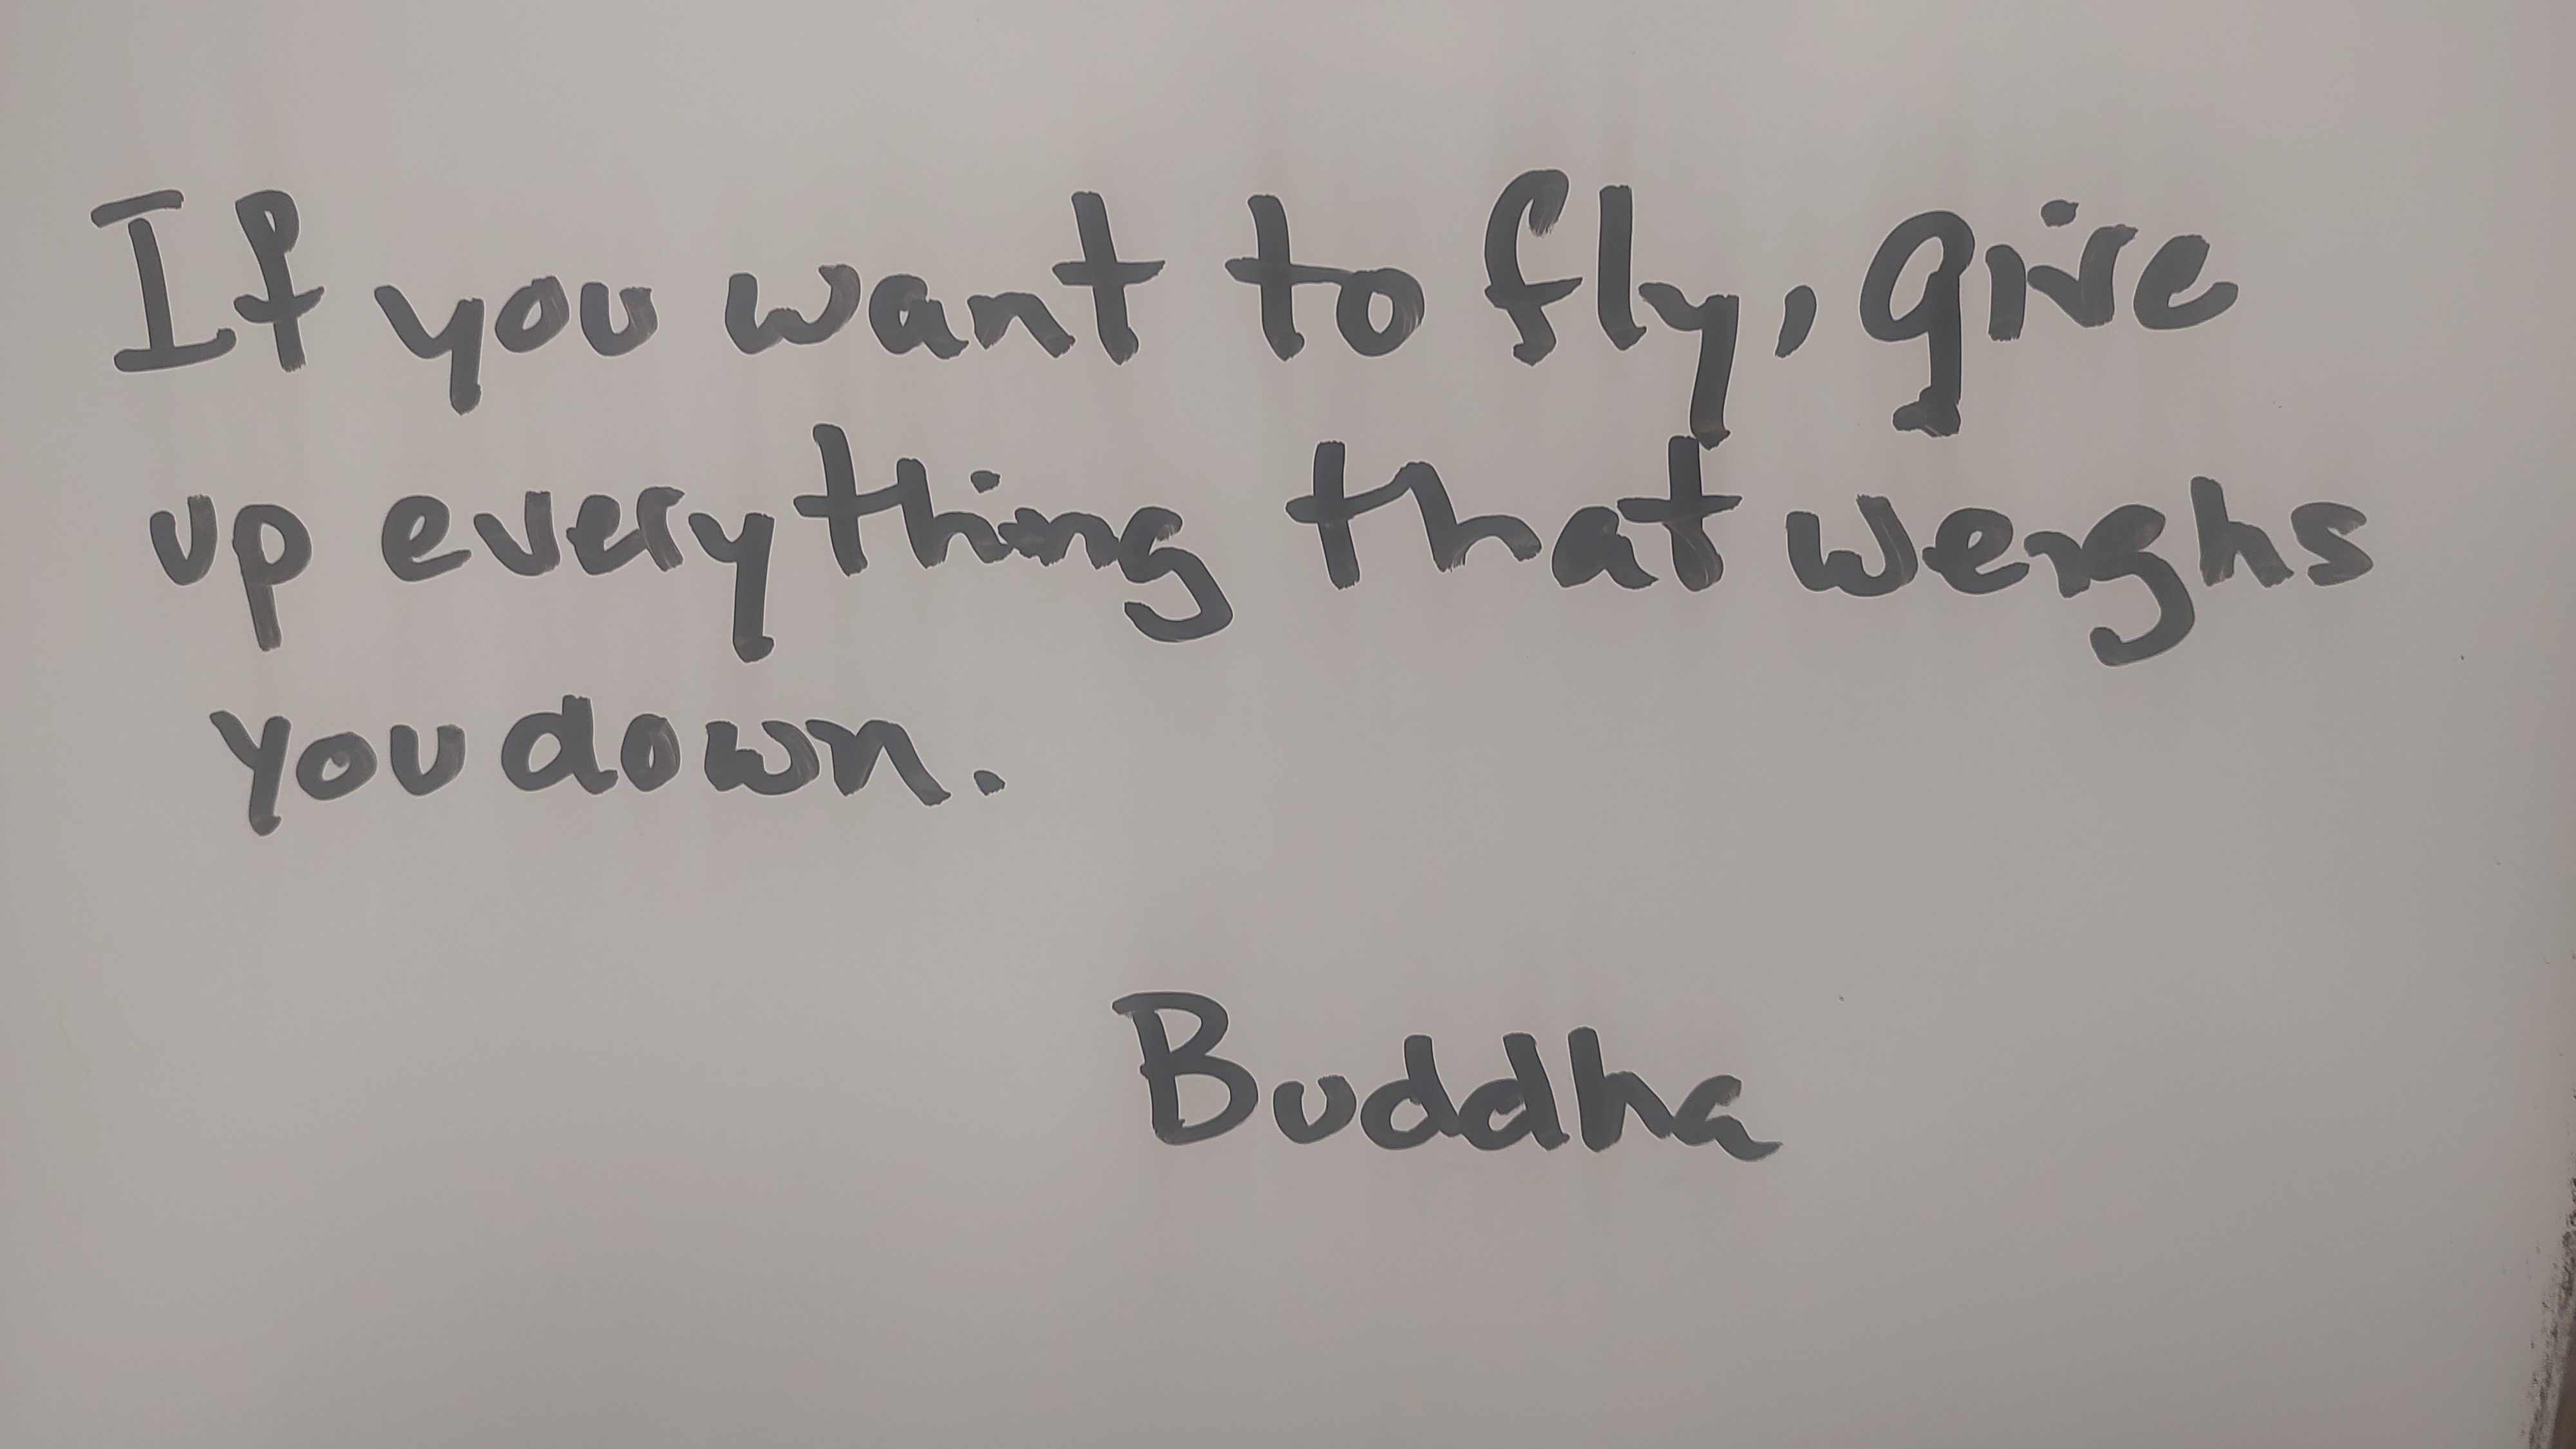 If you want to fly, give
up everything that weighs
you down.
Buddha